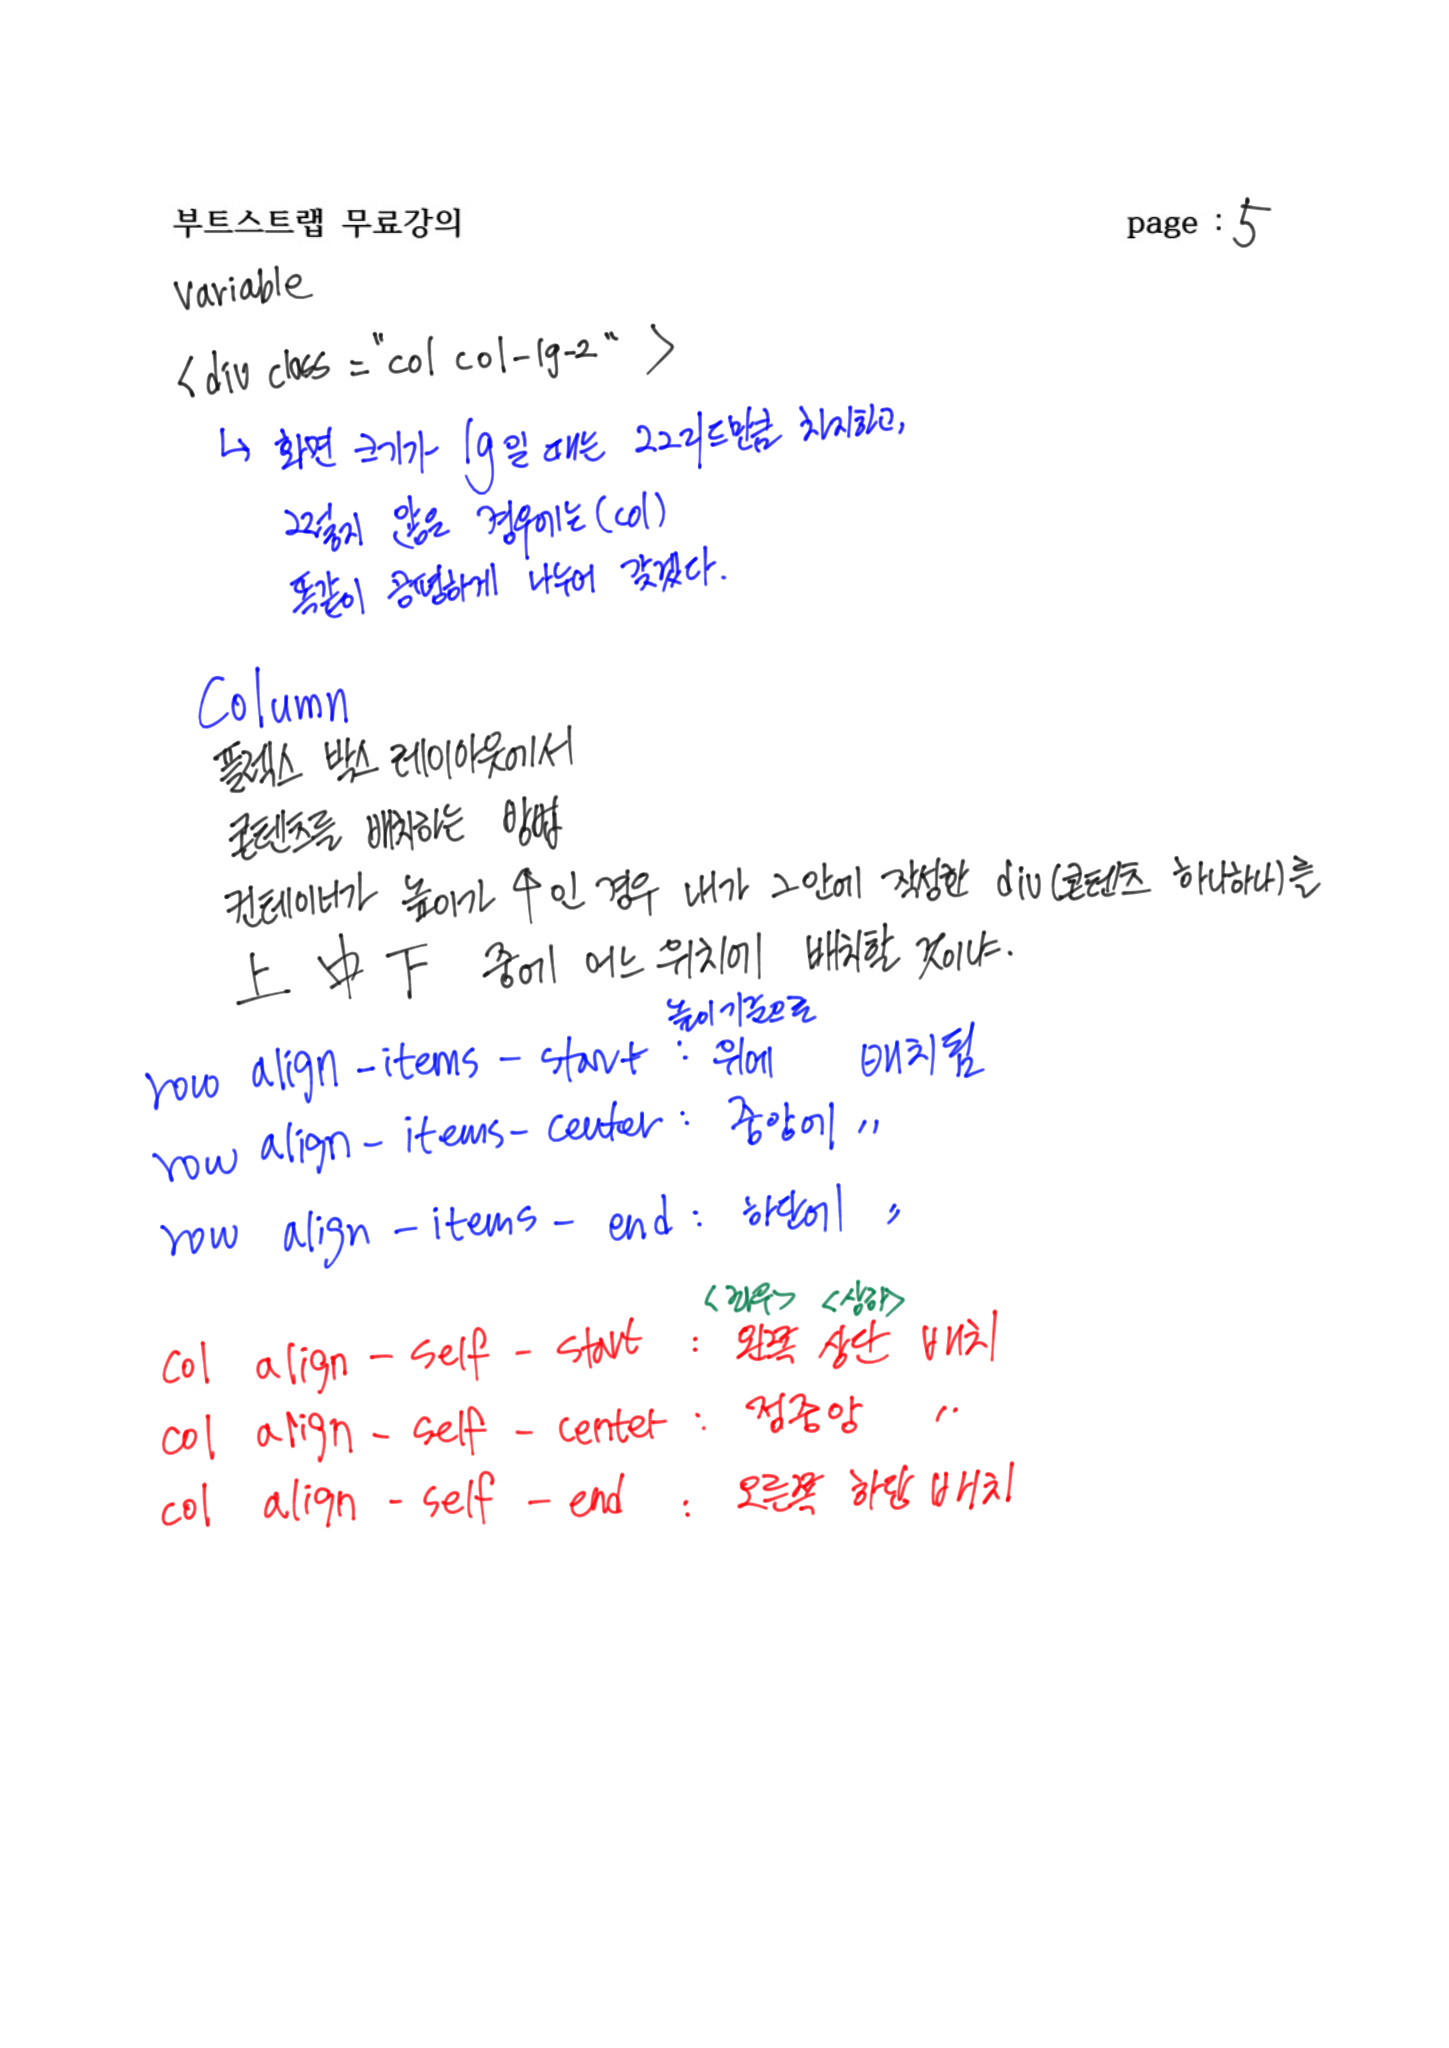 부트스트랩 무료강의 page : 5
variable
<div class="col col-lg-2">
↳ 화면 크기가 lg일 때는 2그리드만큼 차지하고,
그렇지 않은 경우에는(col)
똑같이 공평하게 나누어 갖겠다.
Column
플렉스 박스 레이아웃에서
콘텐츠를 배치하는 방법
컨테이너가 높이가 ↑인 경우 내가 그안에 작성한 div(콘텐츠 하나하나)를
上 中 下 중에 어느 위치에 배치할 것이냐.
높이기준으로
row align-items-start : 위에 배치됨
row align-items-center : 중앙에 〃
row align-items-end : 하단에 〃
<좌우> <상하>
col align-self-start : 왼쪽 상단 배치
col align-self-center : 정중앙 〃
col align-self-end : 오른쪽 하단 배치